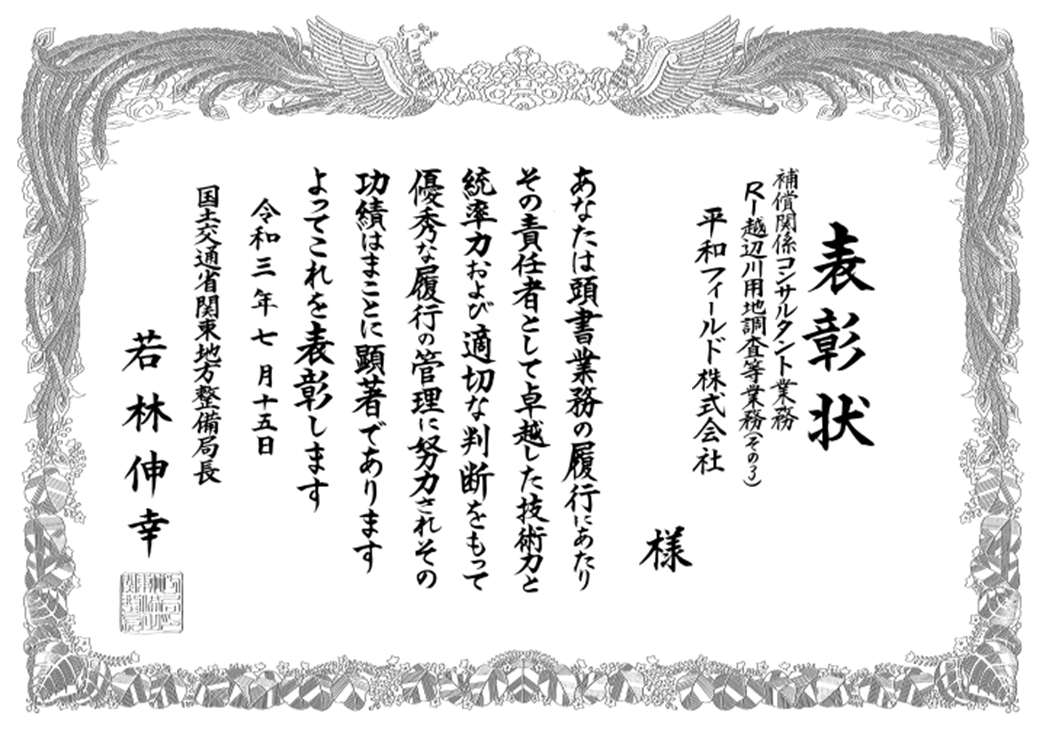 表彰状
補償関係コンサルタント業務
R1越辺川用地調査等業務(その1)
平和フィールド株式会社
様
あなたは頭書業務の履行にあたり
その責任者として卓越した技術力と
統率力および適切な判断をもって
優秀な履行の管理に努力されその
功績はまことに顕著であります
よってこれを表彰します
令和三年七月十五日
国土交通省関東地方整備局長
若林伸幸